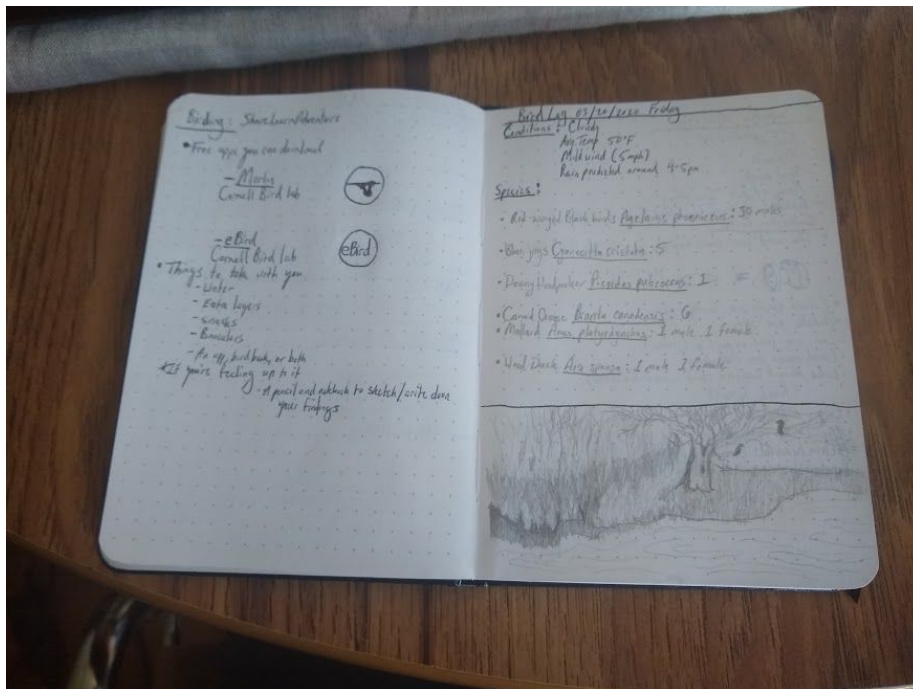 Birding: Share/Learn/Adventure
• Free apps you can download
- Merlin
Cornell Bird Lab
- eBird
eBird
Cornell Bird Lab
• Things to take with you
- Water
- Extra layers
- snacks
- Binoculars
- An app, bird book, or both
*If you're feeling up to it
- A pencil and notebook to sketch/write down
your findings
Bird Log 03/20/2020 Friday
Conditions: Cloudy
Avg. Temp 50°F
Mild wind (5mph)
Rain predicted around 4-5pm
Species:
• Red-winged Black birds Agelaius phoeniceus: 30 males
• Blue jays Cyanocitta cristata: 5
• Downy Woodpecker Picoides pubescens: 1
• Canada Geese Branta canadensis: 6
• Mallard Anas platyrhynchos: 1 male 1 female
• Wood Duck Aix sponsa: 1 male 1 female